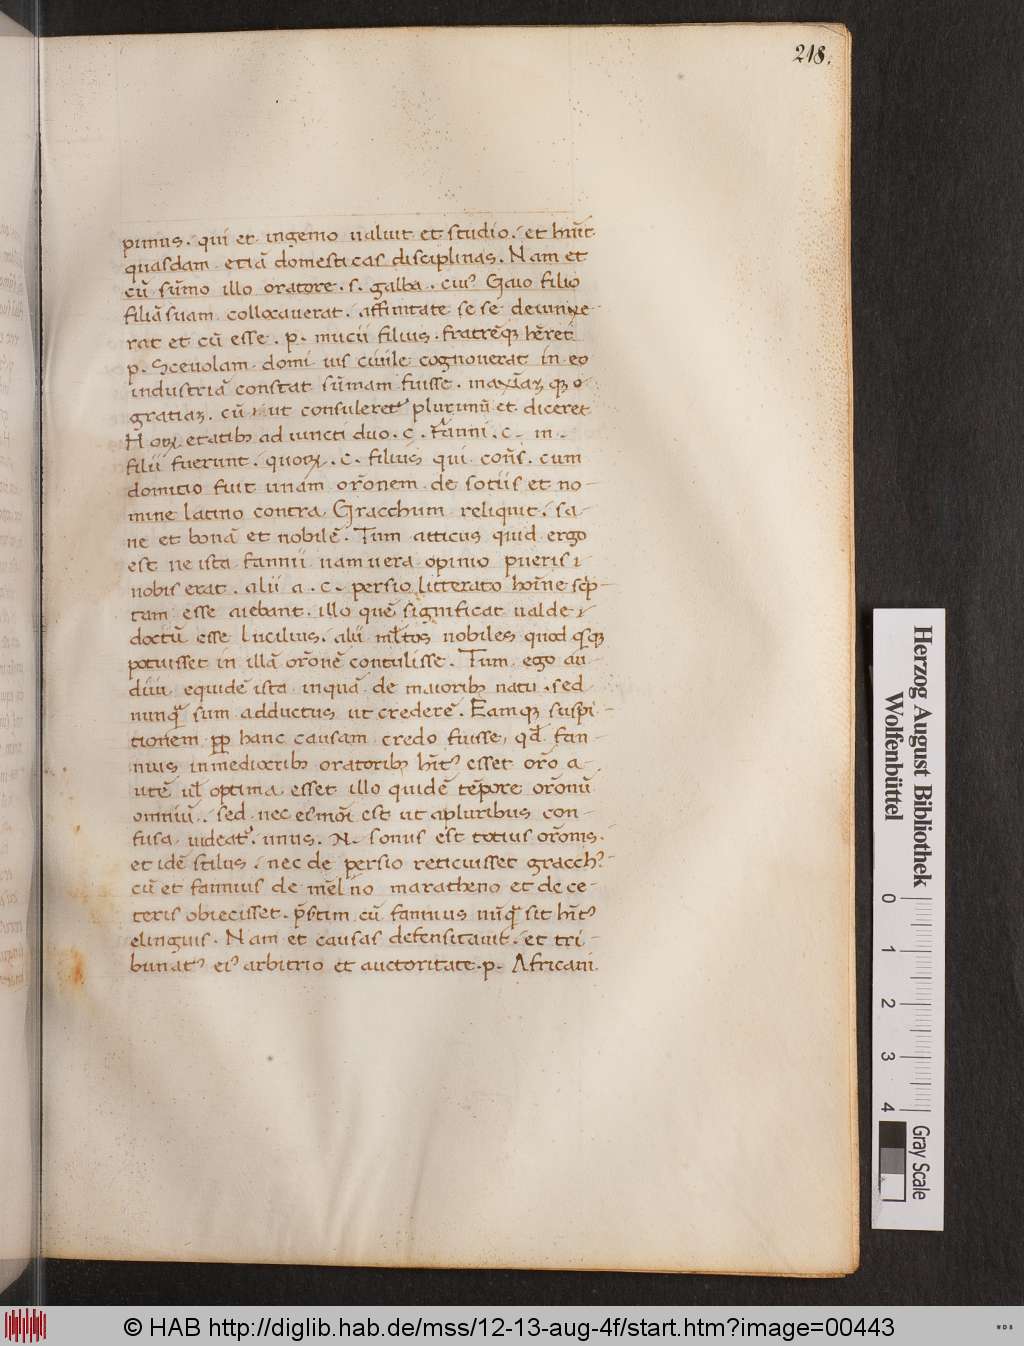 218.
pimus. qui et ingenio ualuit et studio. et hũit
quasdam etiã domesticas disciplinas. Nam et
cũ sũmo illo oratore. s. galba. cuiꝰ Gaio filio
filiã suam collocauerat. affinitate se se deuinxe-
rat et cũ esse. p. mucii filius. fratrẽqꝫ hẽret
p. Sceuolam domi ius ciuile cognouerat in eo
industriã constat sũmam fuisse. maxĩaꝫ qꝫ
gratiaꝫ. cũ ut consuleretꝰ plurimũ et diceret
Hoꝝ etatibꝫ adiuncti duo. C. Fãnni. C. m.
filii fuerunt. quoꝝ. C. filius qui coñs. cum
domitio fuit unam or̃onem de sotiis et no-
mine latino contra Gracchum reliquit. sa-
ne et bonã et nobilẽ. Tum atticus quid ergo
est ne ista fannii nam uera opinio pueris
nobis erat. alii a. C. persio litterato hoĩne scp̃-
tam esse aiebant. illo quẽ significat ualde
doctũ esse lucilius. alii ml̃tos nobiles quod qsqꝫ
potuisset in illã or̃onẽ contulisse. Tum ego au-
diui equidẽ ista inquã de maioribꝫ natu. sed
nunq̃ sum adductus ut crederẽ. Eamqꝫ suspi-
tionem ꝓp hanc causam credo fuisse, qđ fan-
nius inmediocribꝫ oratoribꝫ hĩtꝰ esset or̃o a-
utẽ ul̃ optima esset illo quidẽ tẽpore or̃onũ
omniũ. sed nec eiꝰmõi est ut apluribus con-
fusa uideatꝰ. unus. N. sonus est totius or̃onis.
et idẽ stilus. nec de persio reticuisset gracchꝰ
cũ et fannius de mẽlino maratheno et de ce-
teris obiecisset. p̃stim cũ fannius nũq̃ sit hĩtꝰ
elinguis. Nam et causas defensitauit. et tri-
bunatꝰ eiꝰ arbitrio et auctoritate. p. Africani
Herzog August Bibliothek
Wolfenbüttel
0 1 2 3 4
Gray Scale
© HAB http://diglib.hab.de/mss/12-13-aug-4f/start.htm?image=00443